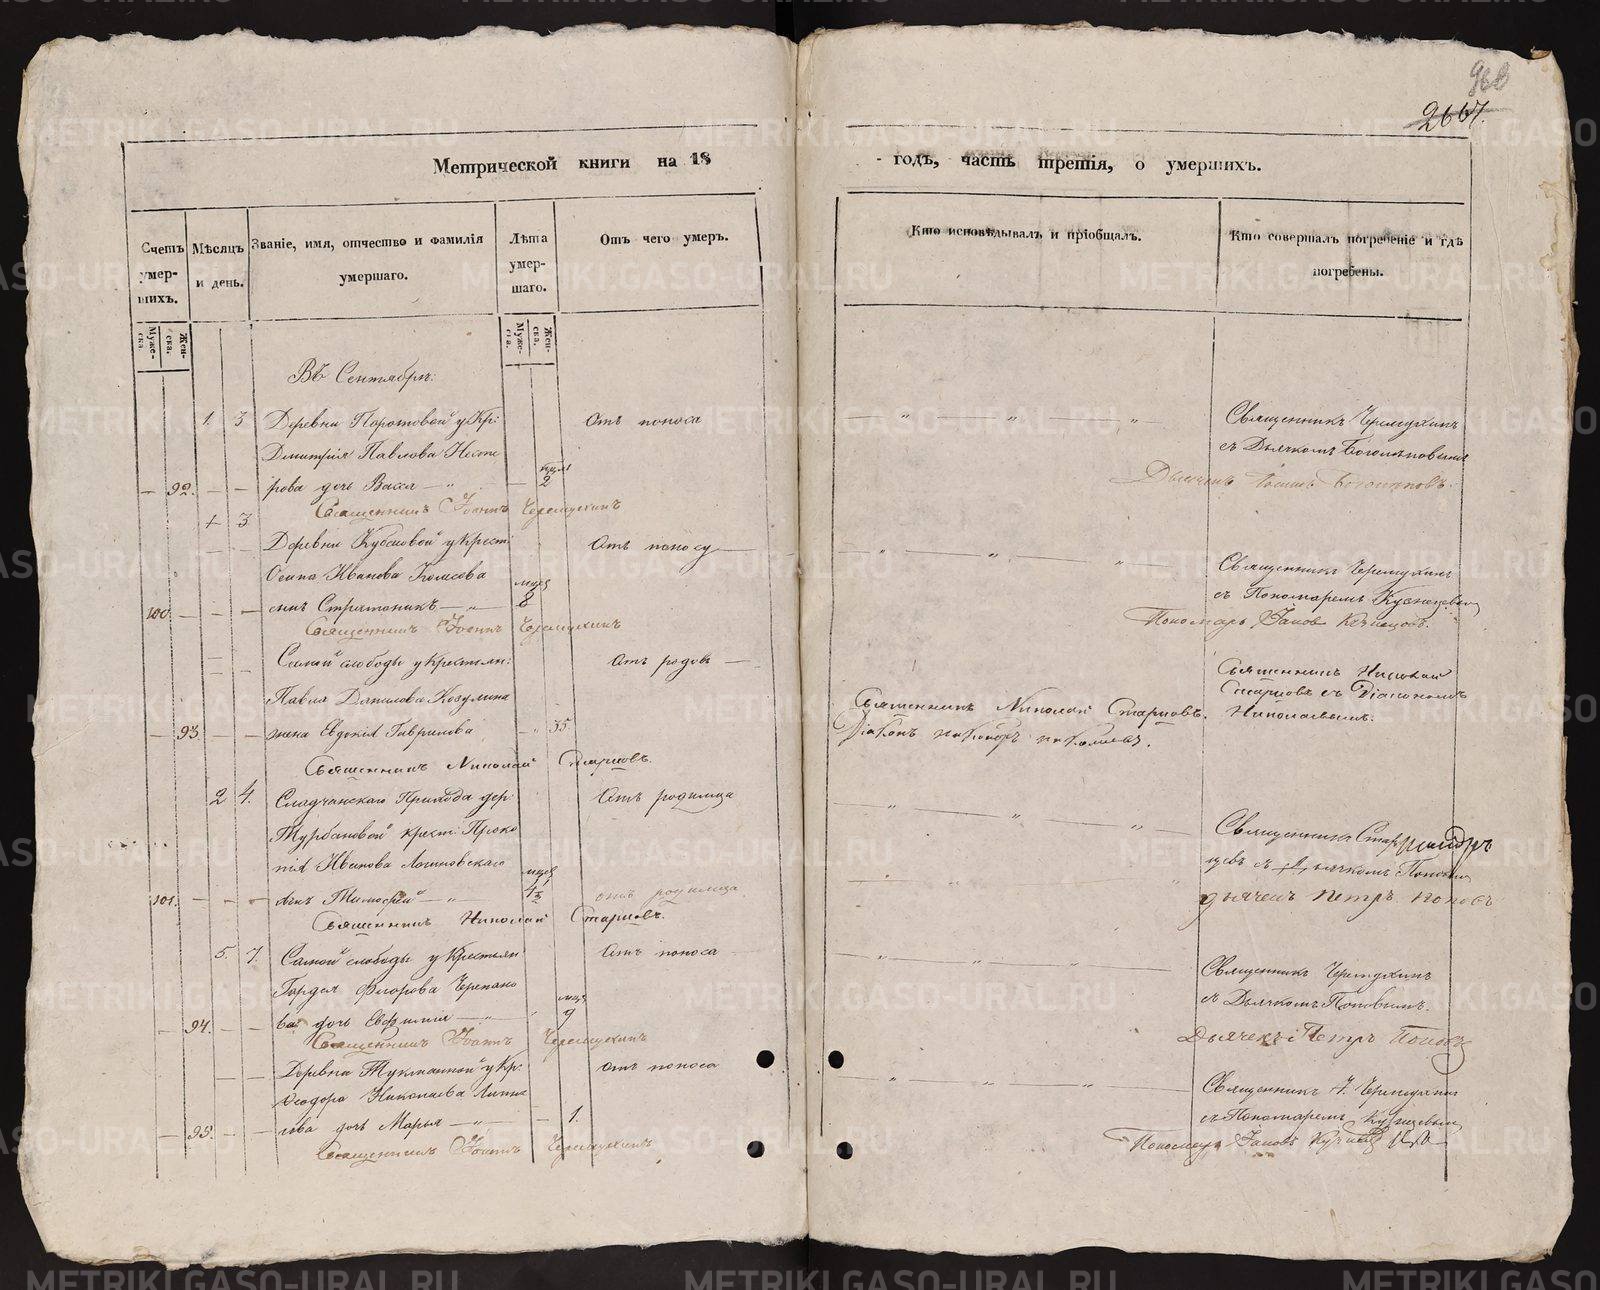 968
2667.
Метрической книги на 18
годъ, часть третія, о умершихъ.
Счетъ умер-шихъ.
Муже-ска.
Жен-ска.
Мѣсяцъ и день.
Званіе, имя, отчество и фамилія умершаго.
Лѣта умер-шаго.
Муже-ска.
Жен-ска.
Отъ чего умеръ.
Кто исповѣдывалъ и пріобщалъ.
Кто совершалъ погребеніе и гдѣ погребены.
Въ Сентябрѣ:
1. 3 Деревни у Кр: Отъ поноса
Священникъ Черемухинъ
Дмитрія Павлова
съ Дьячкомъ
92. рова дочь Васса 2
Дьячекъ
Священникъ Іоаннъ Черемухинъ
+ 3
Деревни у Крест: Отъ поносу
Священникъ Черемухинъ
Осипа Иванова мцев
съ Пономаремъ Кузнецовым
100. сынъ Стратоникъ 8
Пономарь Іаковъ Кузнецовъ.
Священникъ Іоаннъ Черемухинъ
Самой слободы у крестьян: Отъ родовъ
Священникъ Николай
Павла Данилова
Старцовъ съ Діакономъ
Священникъ Николай Старцовъ.
Николаевымъ.
93. жена Евдокія Гаврилова 35
Діаконъ
Священникъ Николай Старцовъ.
2 4. Прихода дер: Отъ родимца
Священникъ Стар
крест: Проко
цевъ съ Дьячкомъ Поповым
пія Иванова Логиновскаго мцев
101. сынъ Тимофей отъ родимца
дьячекъ Петръ Поповъ
Священникъ Николай Старцовъ.
5. 7. Самой слободы у Крестьян Отъ поноса
Священникъ Черемухинъ
Гордея Федорова Черепано
съ Дьячкомъ Поповымъ.
94. ва дочь Евфимия 9
Дьячекъ Петръ Поповъ
Священникъ Іоаннъ Черемухинъ
Деревни у Кр: Отъ поноса
Священникъ І. Черемухин
Федора Николаева
съ Пономаремъ Кузнецовым
95. дочь Марья 1.
Пономарь Іаковъ Кузнецовъ
Священникъ Іоаннъ Черемухинъ
METRIKI.GASO-URAL.RU